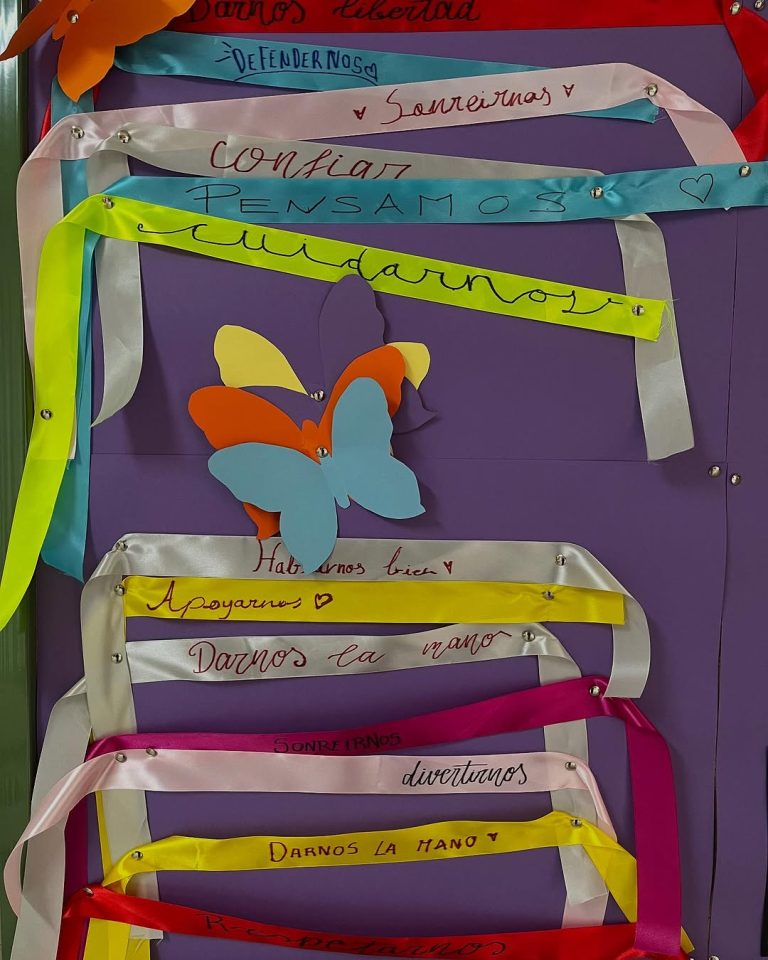 Darnos libertad
DEFENDERNOS
Sonreirnos
confiar
PENSAMOS
cuidarnos
Hablarnos bien
Apoyarnos
Darnos la mano
SONREIRNOS
divertirnos
DARNOS LA MANO
Respetarnos